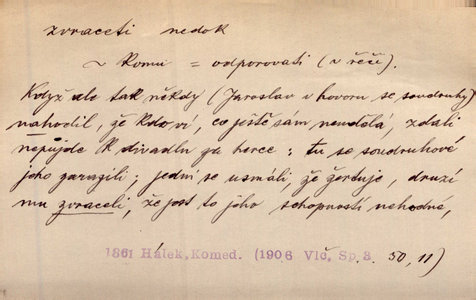 zvraceti nedok
~ komu = odporovati (v řeči).
Když ale tak někdy (Jaroslav v hovoru se soudruhy)
nahodil, že kdo ví, co ještě sám neudělá, zdali
nepůjde k divadlu za herce: tu se soudruhové
jeho zarazili; jední se usmáli, že žertuje, druzí
mu zvraceli, že jest to jeho schopností nehodné,
1861 Hálek, Komed. (1906 Vlč, Sp. 3. 50, 11)